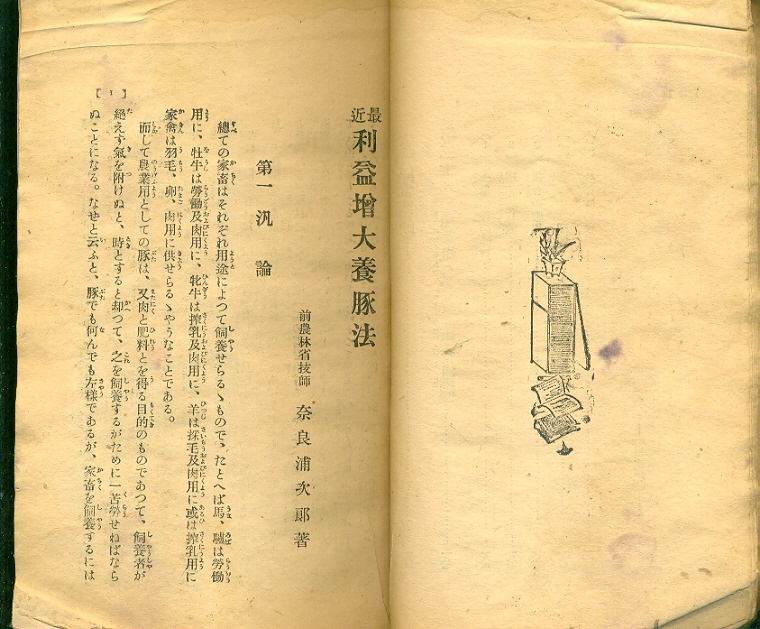 最近 利益增大養豚法
前農林省技師 奈良浦次郎著
第一 汎論
總ての家畜はそれぞれ用途によつて飼養せらるゝもので、たとへば馬、驢は勞働
用に、牡牛は勞働及肉用に、牝牛は搾乳及肉用に、羊は採毛及肉用に或は搾乳用に
家禽は羽毛、卵、肉用に供せらるゝやうなことである。
而して農業用としての豚は、又肉と肥料とを得る目的のものであつて、飼養者が
絕えず氣を附けぬと、時とすると却つて、之を飼養するがために一苦勞せねばなら
ぬことになる。なぜと云ふと、豚でも何んでも左樣であるが、家畜を飼養するには
【1】